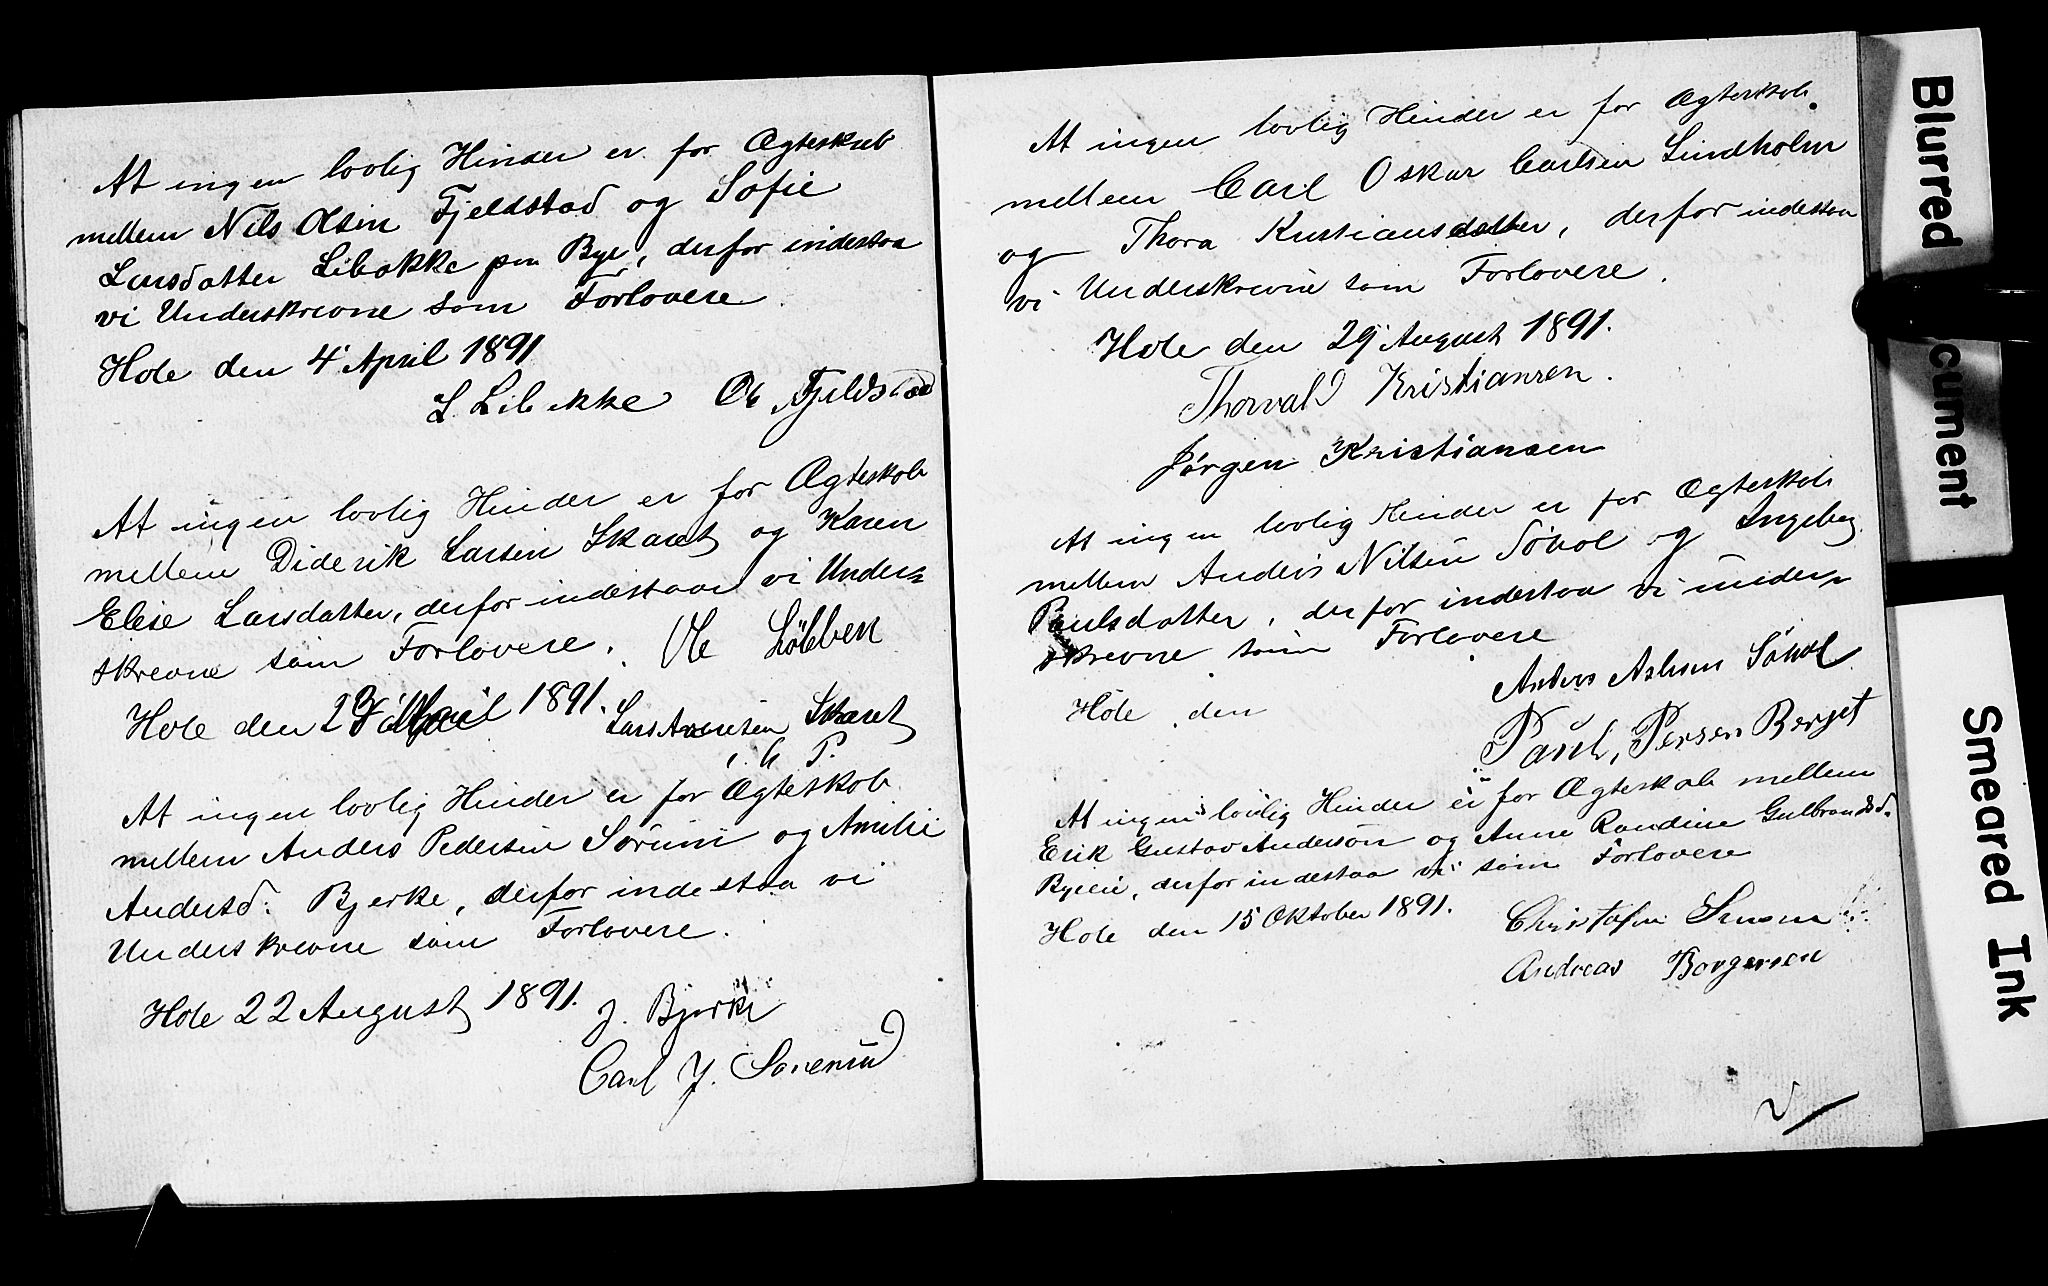 At ingen lovlig Hinder er for Ægteskab
mellem Nils Olsen Fjeldstad og Sofie
Larsdatter Libakke pm Bye, derfor indestaa
vi Underskrevne som Forlovere.
Hole den 4 April 1891
L. Libakke Ole Fjeldstad
At ingen lovlig Hinder er for Ægteskab
mellem Diderik Larsen Skaret og Karen
Elise Larsdatter, derfor indestaar vi Under-
skrevne som Forlovere. Ole Løbben
Hole den 1891. Lars Skaret
P.
At ingen lovlig Hinder er for Ægteskab
mellem Anders Pedersen Sørum og Amilie
Andersd: Bjerke, derfor indestaa vi
Underskrevne som Forlovere.
Hole 22 August 1891. J. Bjerke
Carl J.
At ingen lovlig Hinder er for Ægteskab
mellem Carl Oskar Carlsen Lindholm
og Thora Kristiansdatter, derfor indestaa
vi Underskrevne som Forlovere.
Hole den 29 August 1891.
Thorvald Kristiansen.
Jørgen Kristiansen
At ingen lovlig Hinder er for Ægteskab
mellem Anders Nilsen Søhol og Ingeborg
Paulsdatter, derfor indestaa vi under-
skrevne som Forlovere
Anders Søhol
Hole den
Paul Persen Berget
At ingen lovlig Hinder er for Ægteskab mellem
Erik Gustav Anderson og Anne Randine Gulbrandsd.
Byeie, derfor indestaa vi som Forlovere
Hole den 15 Oktober 1891. Christofer
Andreas Borgersen
Blurred Document
Smeared Ink